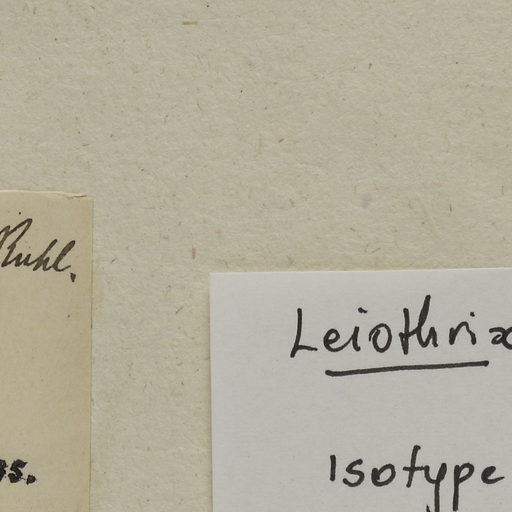 Ruhl.
Leiothrix
Isotype